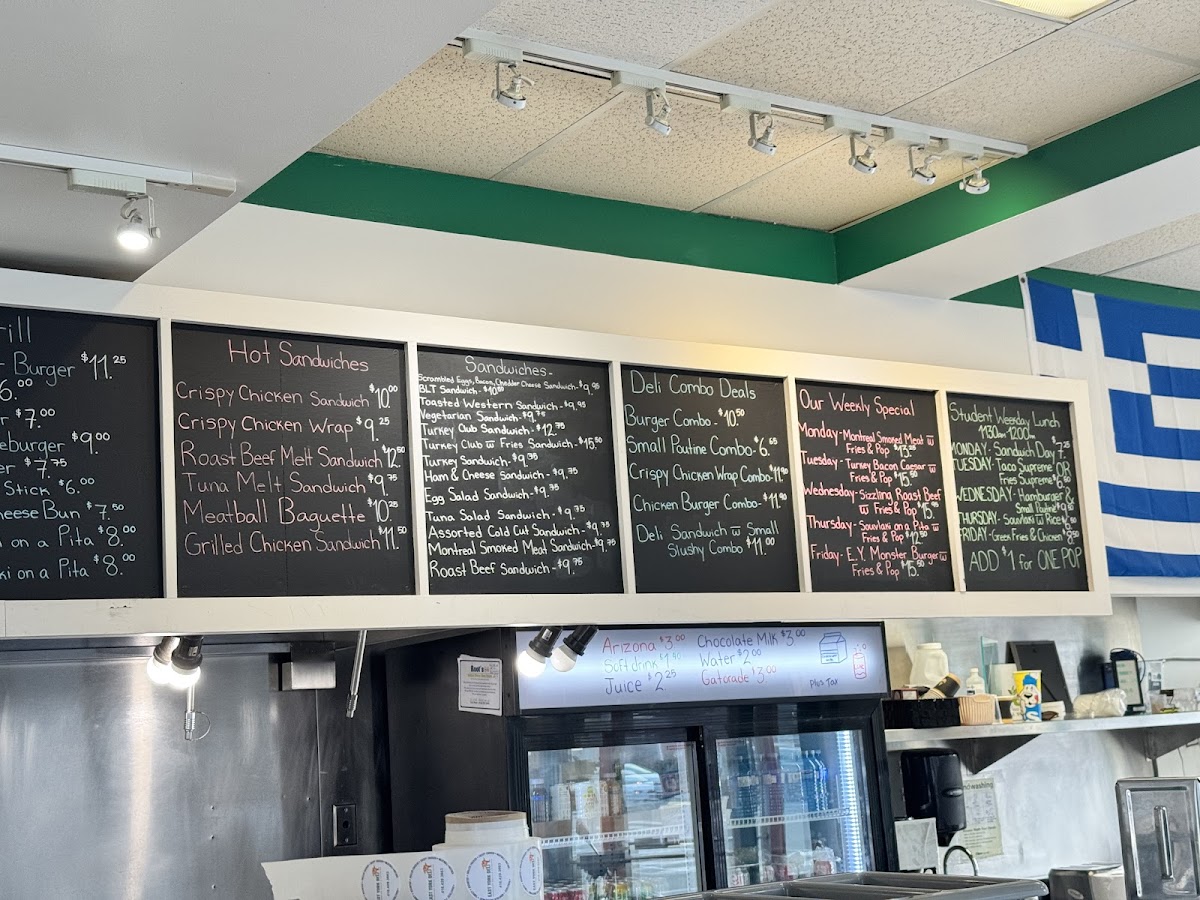 rill
Burger $11.25
6.00
r $7.00
eburger $9.00
er $7.75
Stick $6.00
heese Bun $7.50
on a Pita $8.00
ki on a Pita $8.00
Hot Sandwiches
Crispy Chicken Sandwich $10.00
Crispy Chicken Wrap $9.25
Roast Beef Melt Sandwich $12.50
Tuna Melt Sandwich $9.75
Meatball Baguette $10.25
Grilled Chicken Sandwich $11.50
Sandwiches-
Scrambled Eggs, Bacon, Cheddar Cheese Sandwich-$9.95
BLT Sandwich-$10.50
Toasted Western Sandwich-$9.95
Vegetarian Sandwich-$9.75
Turkey Club Sandwich-$12.75
Turkey Club w Fries Sandwich-$15.50
Turkey Sandwich-$9.75
Ham & Cheese Sandwich-$9.75
Egg Salad Sandwich-$9.75
Tuna Salad Sandwich-$9.75
Assorted Cold Cut Sandwich-$9.75
Montreal Smoked Meat Sandwich-$9.75
Roast Beef Sandwich-$9.75
Deli Combo Deals
Burger Combo-$10.50
Small Poutine Combo-$6.65
Crispy Chicken Wrap Combo-$11.90
Chicken Burger Combo-$11.90
Deli Sandwich w Small
Slushy Combo $11.00
Our Weekly Special
Monday-Montreal Smoked Meat w
Fries & Pop $13.25
Tuesday-Turkey Bacon Caesar w
Fries & Pop $15.50
Wednesday-Sizzling Roast Beef
w Fries & Pop $15.95
Thursday-Souvlaki on a Pita w
Fries & Pop $12.50
Friday-E.Y. Monster Burger w
Fries & Pop $15.50
Student Weekday Lunch
1130am 1200pm
MONDAY-Sandwich Day $7.25
TUESDAY-Taco Supreme OR
Fries Supreme $6.80
WEDNESDAY-Hamburger &
Small Poutine
THURSDAY-Souvlaki w Rice
FRIDAY-Greek Fries & Chicken $8.50
ADD $1 for ONE POP
Arizona $3.00
Soft drink $1.90
Juice $2.25
Chocolate Milk $3.00
Water $2.00
Gatorade $3.00
Plus Tax
EAST YORK DELI